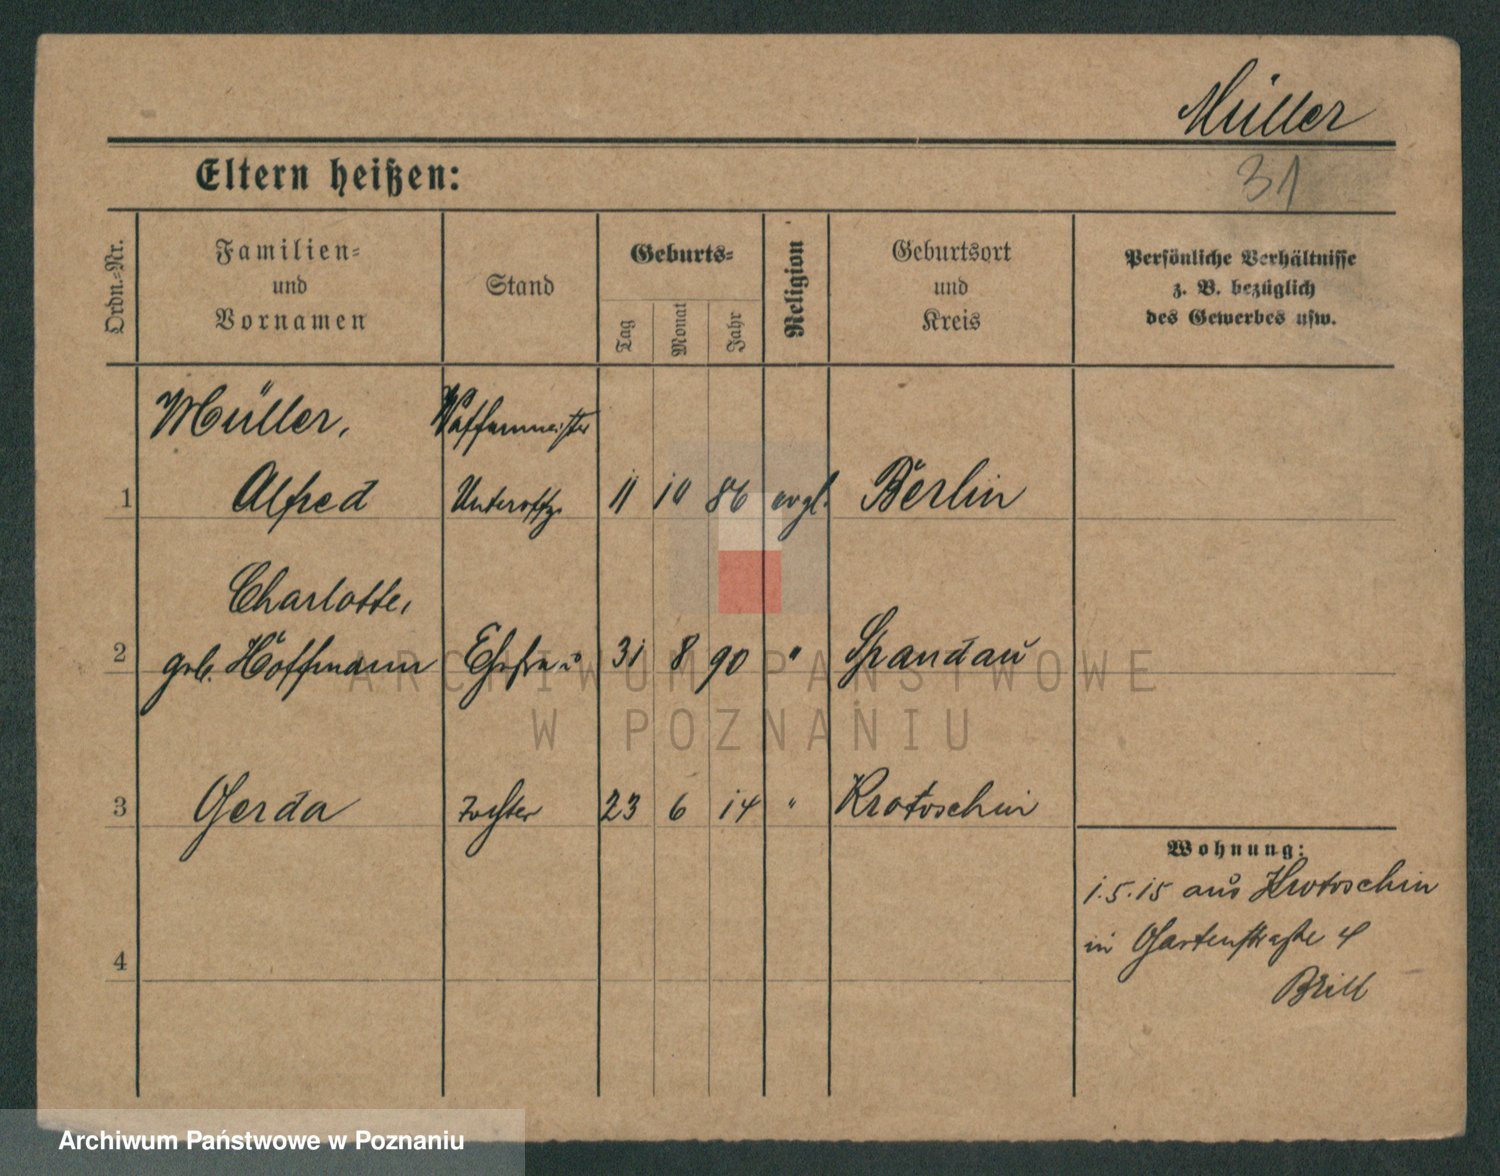 Müller
Eltern heißen:
31
Ordn.-Nr.
Familien-
und
Vornamen
Stand
Geburts-
Tag
Monat
Jahr
Religion
Geburtsort
und
Kreis
Persönliche Verhältnisse
z. B. bezüglich
des Gewerbes usw.
Müller, Waffenmeister
1 Alfred Unteroffz. 11 10 86 evgl. Berlin
Charlotte,
2 geb. Hoffmann Ehefrau 31 8 90 " Spandau
3 Gerda Tochter 23 6 14 " Krotoschin
Wohnung:
1.5.15 aus Krotoschin
in Gartenstraße 4
Brill
4
ARCHIWUM PAŃSTWOWE
W POZNANIU
Archiwum Państwowe w Poznaniu